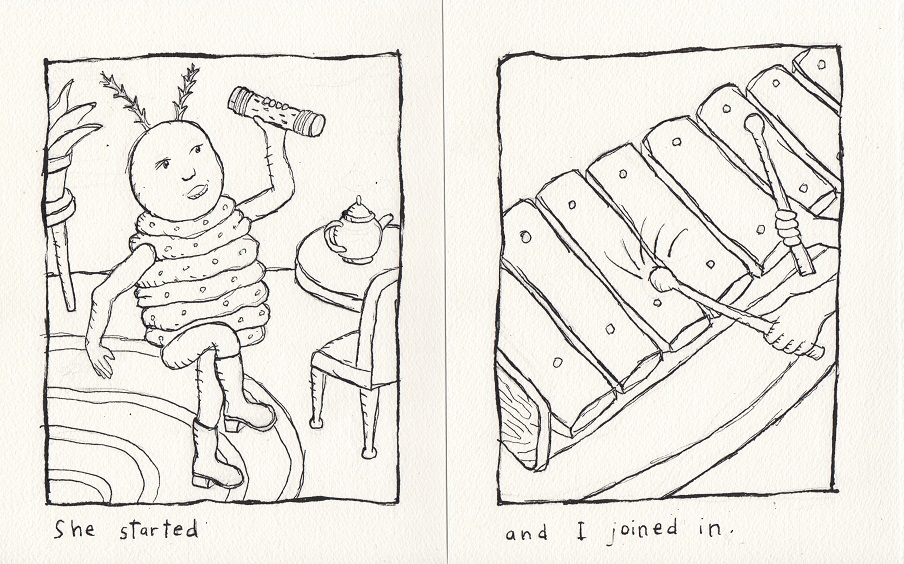 She started
and I joined in.